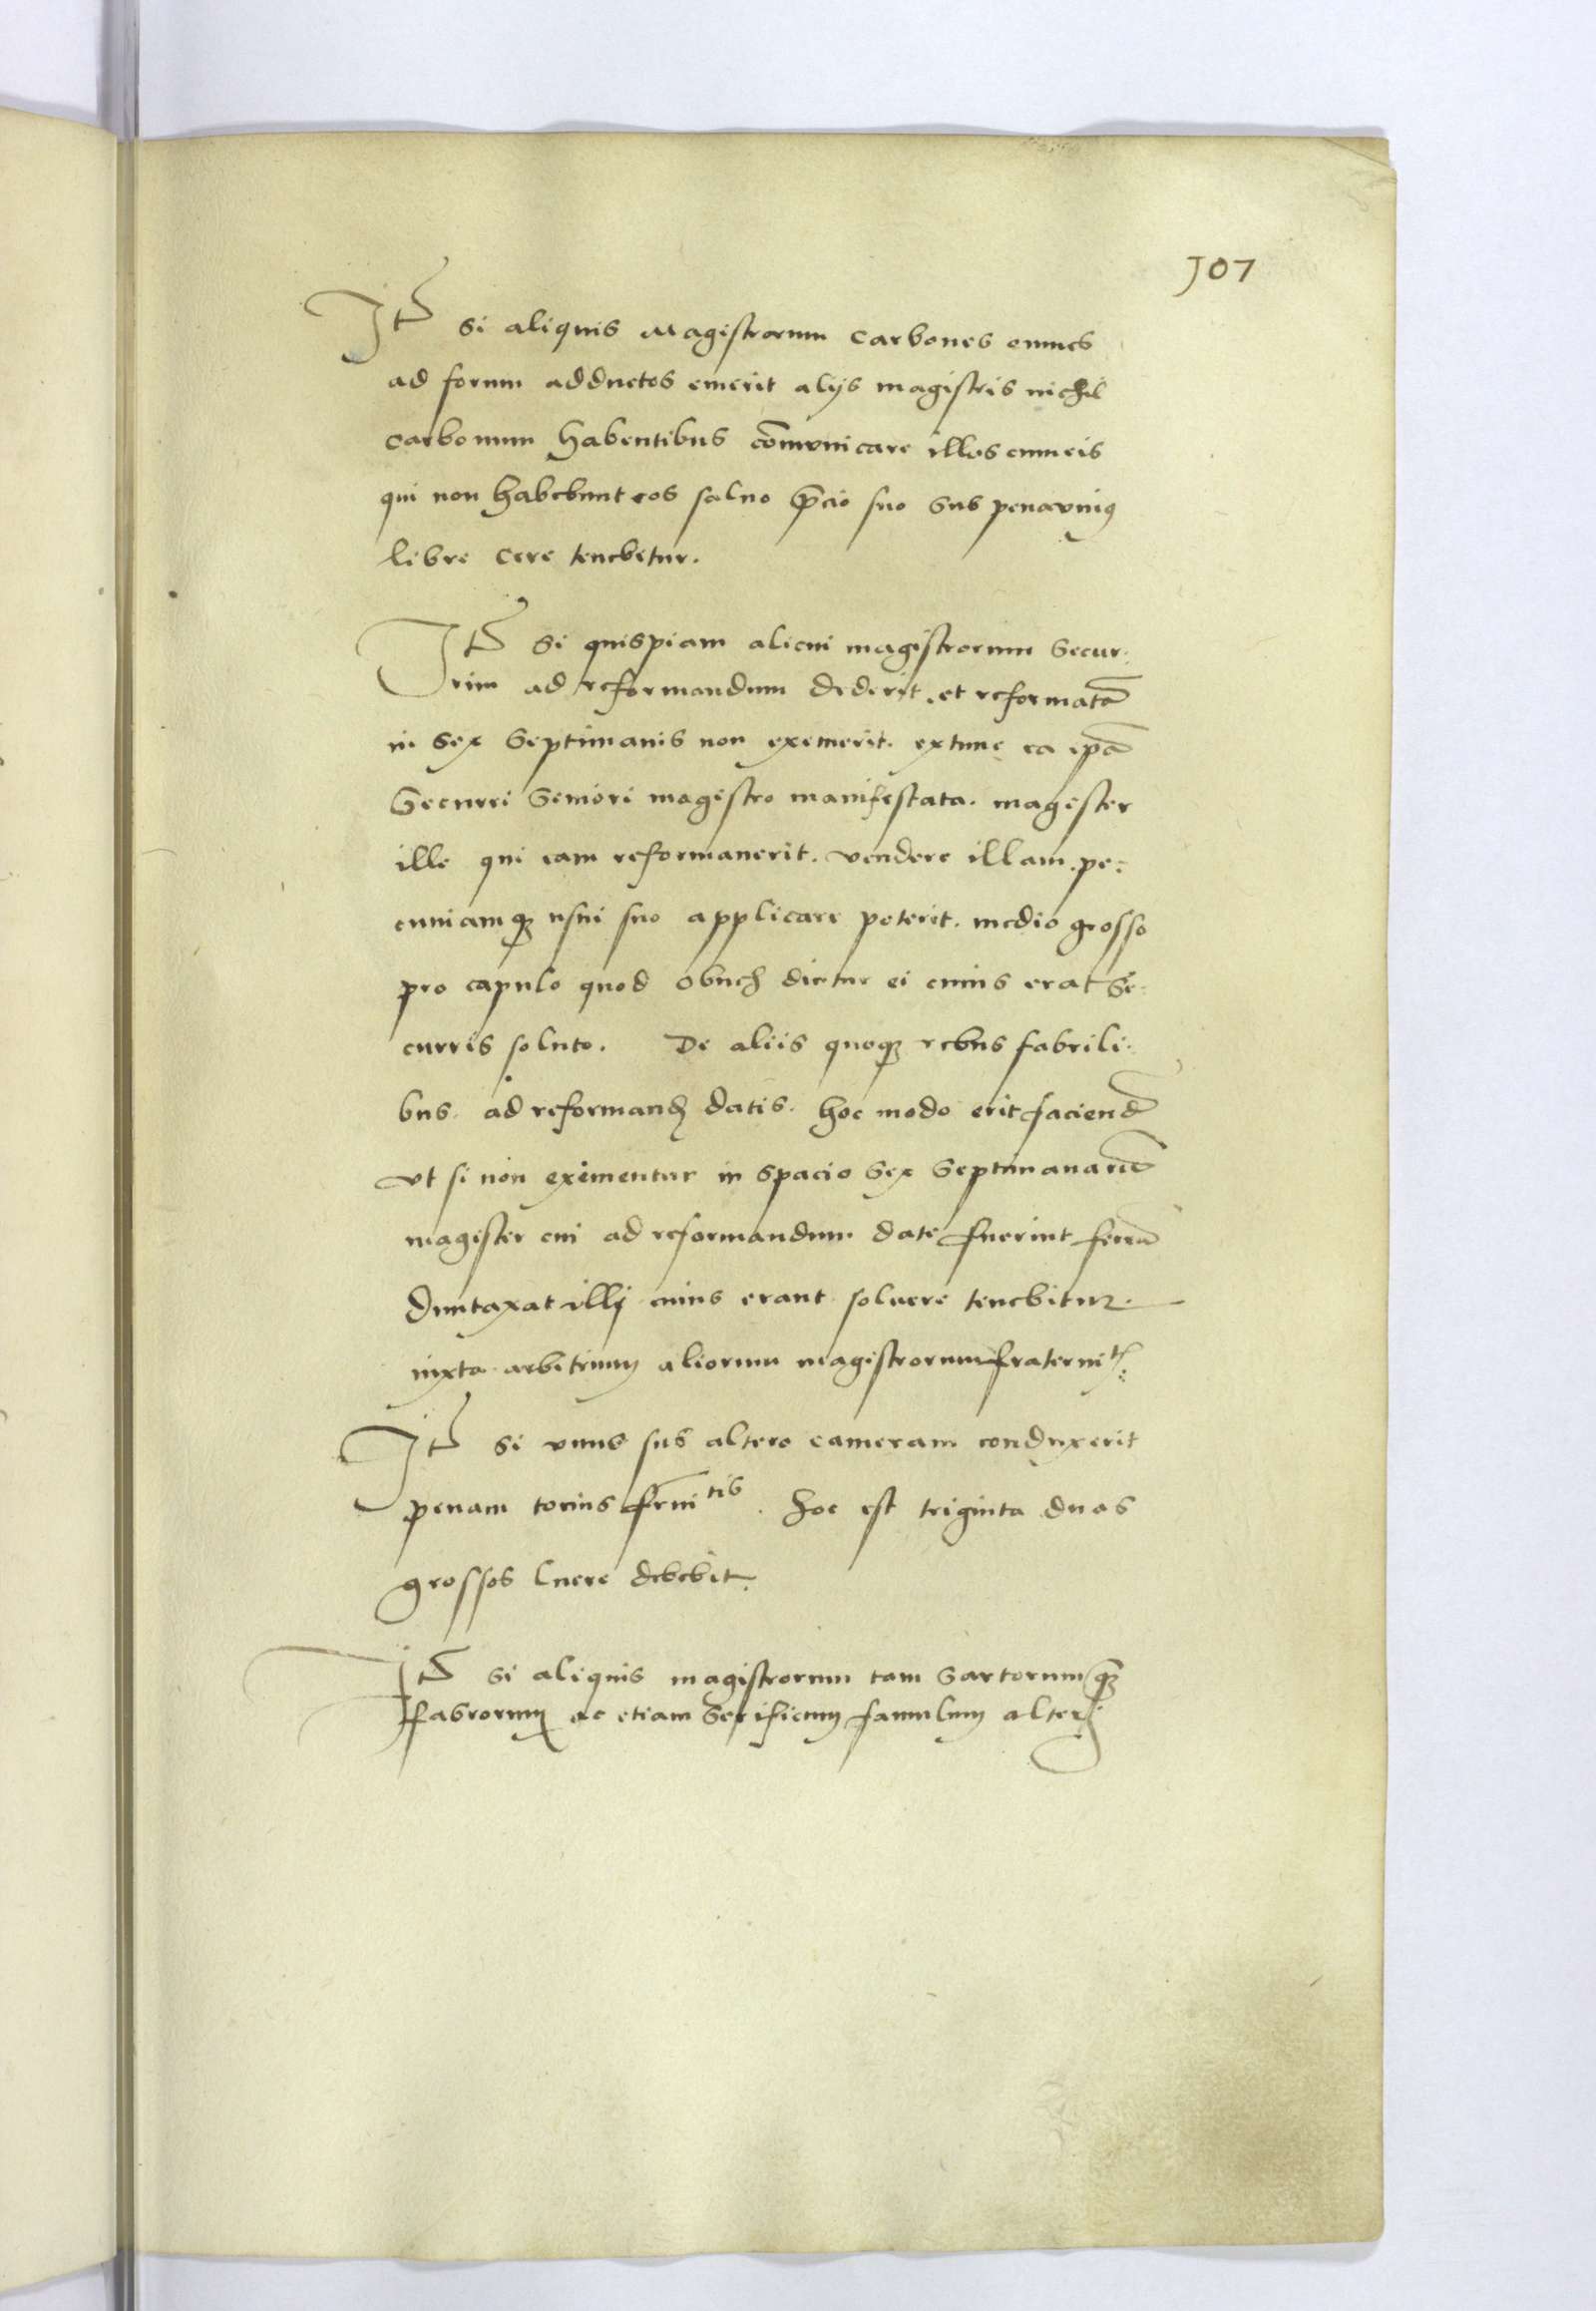 107
Itē si aliquis Magistrorum carbones omnes
ad forum adductos emerit alijs magistris nichil
carbonum habentibus cōmvnicare illos cum eis
qui non habebunt eos saluo p̄cio suo sub pena vniꝰ
libre cere tenebetur.
Itē si quispiam alicui magistrorum secur-
rim ad reformandum dederit. et reformatā
in sex septimanis non exemerit. extunc ea ip̄a
securri seniori magistro manifestata. magister
ille qui eam reformauerit. vendere illam. pe:
cuniamqꝫ usui suo applicare poterit. medio grosso
pro capulo quod obuch dictur ei cuius erat se-
curris soluto. De aliis quoqꝫ rebus fabrili-
bus. ad reformandꝫ datis. hoc modo erit faciendū
vt si non eximentur in spacio sex septimanarū
magister cui ad reformandum date fuerint ferrū
duntaxat illj cuius erant soluere tenebitur.
iuxta arbitrium aliorum magistrorum fraternitꝭ.
Itē si vnus sub altero cameram conduxerit
penam tocius fr̄ni tis. hoc est triginta duos
grossos luere debebit.
Itē si aliquis magistrorum tam sartorum qꝫ
fabrorum ac etiam serificum famulum alterj